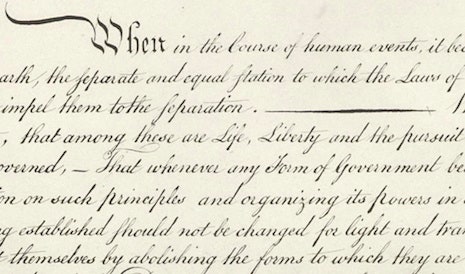 When in the Course of human events, it bec
arth, the separate and equal station to which the Laws of
impel them to the separation.
, that among these are Life, Liberty and the pursuit
overned, — That whenever any Form of Government be
on on such principles and organizing its powers in
g established should not be changed for light and tran
t themselves by abolishing the forms to which they are